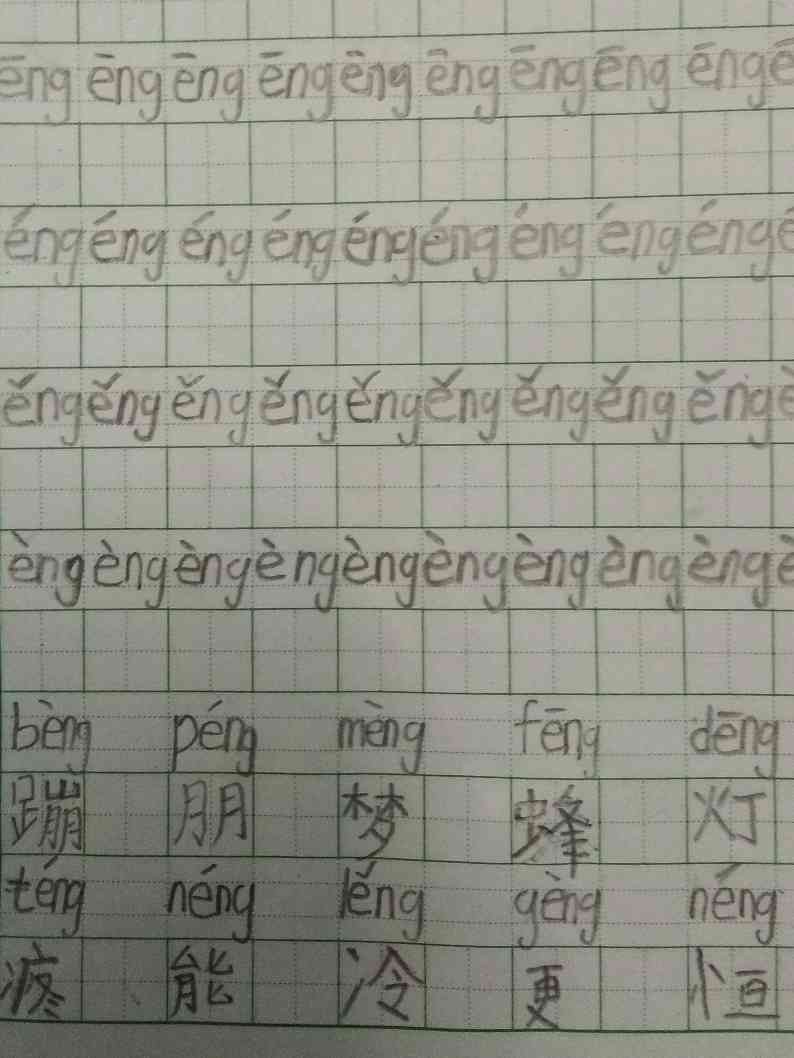 ēng ēng ēng ēng ēng ēng ēng ēng ēng ē
éng éng éng éng éng éng éng éng éng é
ěng ěng ěng ěng ěng ěng ěng ěng ěng ě
èng èng èng èng èng èng èng èng èng è
bèng péng mèng fēng dēng
蹦 朋 梦 蜂 灯
téng néng lěng gèng néng
疼 能 冷 更 恒